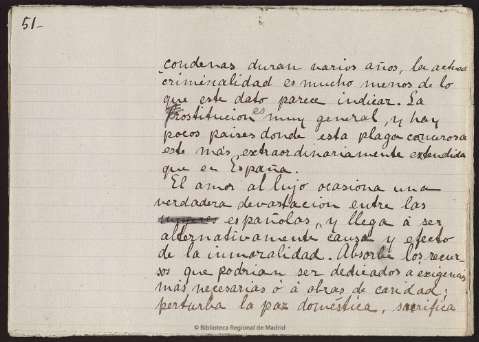 51-
condenas duran varios años, la actual
criminalidad es mucho menos de lo
que este dato parece indicar. La
Prostitucion es muy general, y hay
pocos paises donde esta plaga cancerosa
este más extraordinariamente extendida
que en España.
El amor al lujo ocasiona una
verdadera devastación entre las
españolas, y llega á ser
alternativamente causa y efecto
de la inmoralidad. Absorbe los recur
sos que podrian ser dedicados a exigencias
más necesarias ó á obras de caridad;
perturba la paz doméstica, sacrifica
© Biblioteca Regional de Madrid